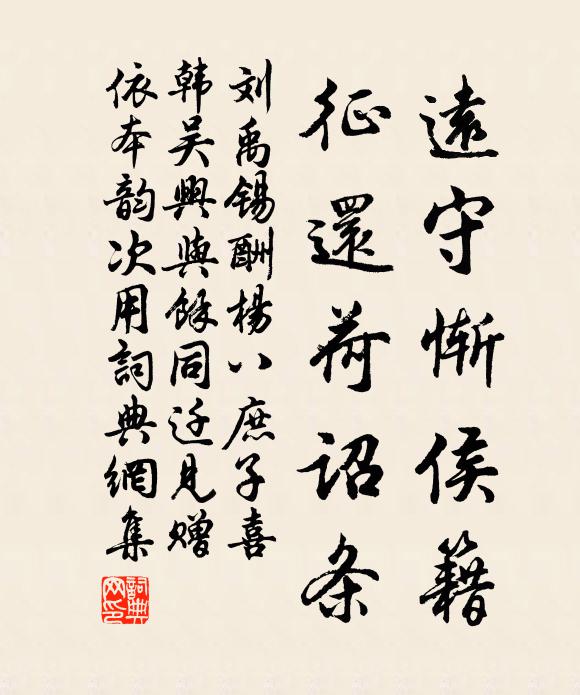 遠守慚侯籍
征還荷詔条
刘禹锡酬楊八庶子喜
韩吴興與餘同迁見赠
依本韵次用詞典網集
詞典網印